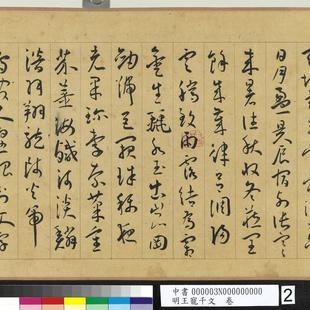 日月盈昃辰宿列張寒
來暑往秋收冬藏閏
餘成歲律呂調陽
雲騰致雨露結為霜
金生麗水玉出崑岡
劍號巨闕珠稱夜
光果珍李柰菜重
芥薑海鹹河淡鱗
潛羽翔龍師火帝
鳥官人皇始制文字
中書 000003N000000000
明王寵千文 卷
2